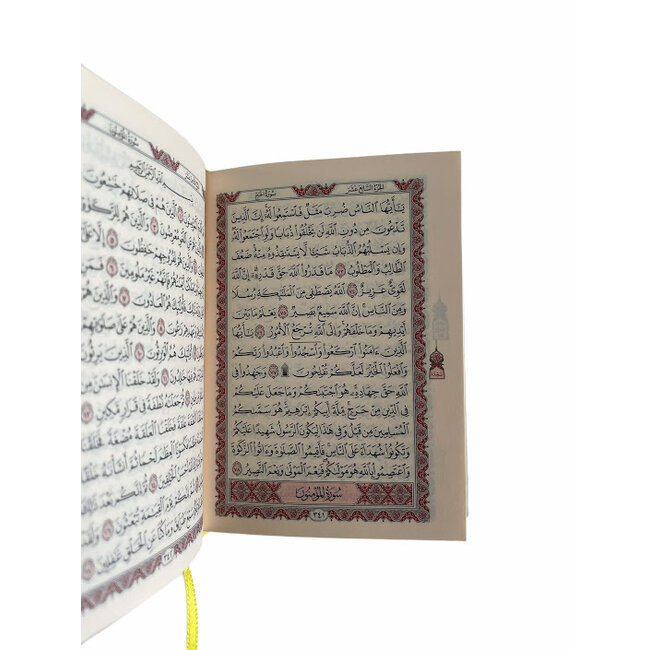 الجزء السابع عشر
سورة الحج
يَٰٓأَيُّهَا ٱلنَّاسُ ضُرِبَ مَثَلٌ فَٱسْتَمِعُوا۟ لَهُۥٓ إِنَّ ٱلَّذِينَ
تَدْعُونَ مِن دُونِ ٱللَّهِ لَن يَخْلُقُوا۟ ذُبَابًا وَلَوِ ٱجْتَمَعُوا۟ لَهُۥ
وَإِن يَسْلُبْهُمُ ٱلذُّبَابُ شَيْـًٔا لَّا يَسْتَنقِذُوهُ مِنْهُ ضَعُفَ
ٱلطَّالِبُ وَٱلْمَطْلُوبُ ٧٣ مَا قَدَرُوا۟ ٱللَّهَ حَقَّ قَدْرِهِۦٓ إِنَّ ٱللَّهَ
لَقَوِىٌّ عَزِيزٌ ٧٤ ٱللَّهُ يَصْطَفِى مِنَ ٱلْمَلَٰٓئِكَةِ رُسُلًا
وَمِنَ ٱلنَّاسِ إِنَّ ٱللَّهَ سَمِيعٌۢ بَصِيرٌ ٧٥ يَعْلَمُ مَا بَيْنَ
أَيْدِيهِمْ وَمَا خَلْفَهُمْ وَإِلَى ٱللَّهِ تُرْجَعُ ٱلْأُمُورُ ٧٦ يَٰٓأَيُّهَا
ٱلَّذِينَ ءَامَنُوا۟ ٱرْكَعُوا۟ وَٱسْجُدُوا۟ وَٱعْبُدُوا۟ رَبَّكُمْ
وَٱفْعَلُوا۟ ٱلْخَيْرَ لَعَلَّكُمْ تُفْلِحُونَ ۩ ٧٧ وَجَٰهِدُوا۟ فِى
ٱللَّهِ حَقَّ جِهَادِهِۦ هُوَ ٱجْتَبَىٰكُمْ وَمَا جَعَلَ عَلَيْكُمْ
فِى ٱلدِّينِ مِنْ حَرَجٍ مِّلَّةَ أَبِيكُمْ إِبْرَٰهِيمَ هُوَ سَمَّىٰكُمُ
ٱلْمُسْلِمِينَ مِن قَبْلُ وَفِى هَٰذَا لِيَكُونَ ٱلرَّسُولُ شَهِيدًا عَلَيْكُمْ
وَتَكُونُوا۟ شُهَدَآءَ عَلَى ٱلنَّاسِ فَأَقِيمُوا۟ ٱلصَّلَوٰةَ وَءَاتُوا۟ ٱلزَّكَوٰةَ
وَٱعْتَصِمُوا۟ بِٱللَّهِ هُوَ مَوْلَىٰكُمْ فَنِعْمَ ٱلْمَوْلَىٰ وَنِعْمَ ٱلنَّصِيرُ ٧٨
سورة المؤمنون
٣٤١
سورة المؤمنون
بِسْمِ ٱللَّهِ ٱلرَّحْمَٰنِ ٱلرَّحِيمِ
ٱلَّذِينَ هُمْ فِى صَلَاتِهِمْ خَٰشِعُونَ
مُعْرِضُونَ ٣ وَٱلَّذِينَ هُمْ لِلزَّكَوٰةِ
هُمْ لِفُرُوجِهِمْ حَٰفِظُونَ ٥ إِلَّا عَلَىٰٓ
أَيْمَٰنُهُمْ فَإِنَّهُمْ غَيْرُ مَلُومِينَ ٦ فَمَنِ
فَأُو۟لَٰٓئِكَ هُمُ ٱلْعَادُونَ ٧ وَٱلَّذِينَ هُمْ
رَٰعُونَ ٨ وَٱلَّذِينَ هُمْ عَلَىٰ صَلَوَٰتِهِمْ
أُو۟لَٰٓئِكَ هُمُ ٱلْوَٰرِثُونَ ١٠ ٱلَّذِينَ يَرِثُونَ
فِيهَا خَٰلِدُونَ ١١ وَلَقَدْ خَلَقْنَا ٱلْإِنسَٰنَ
ثُمَّ جَعَلْنَٰهُ نُطْفَةً فِى قَرَارٍ مَّكِينٍ
عَلَقَةً فَخَلَقْنَا ٱلْعَلَقَةَ مُضْغَةً فَخَلَقْنَا
فَكَسَوْنَا ٱلْعِظَٰمَ لَحْمًا ثُمَّ أَنشَأْنَٰهُ
ٱللَّهُ أَحْسَنُ ٱلْخَٰلِقِينَ ١٤ ثُمَّ إِنَّكُم بَعْدَ
ثُمَّ إِنَّكُمْ يَوْمَ ٱلْقِيَٰمَةِ تُبْعَثُونَ ١٦
طَرَآئِقَ وَمَا كُنَّا عَنِ ٱلْخَلْقِ غَٰفِلِينَ
٣٤٢